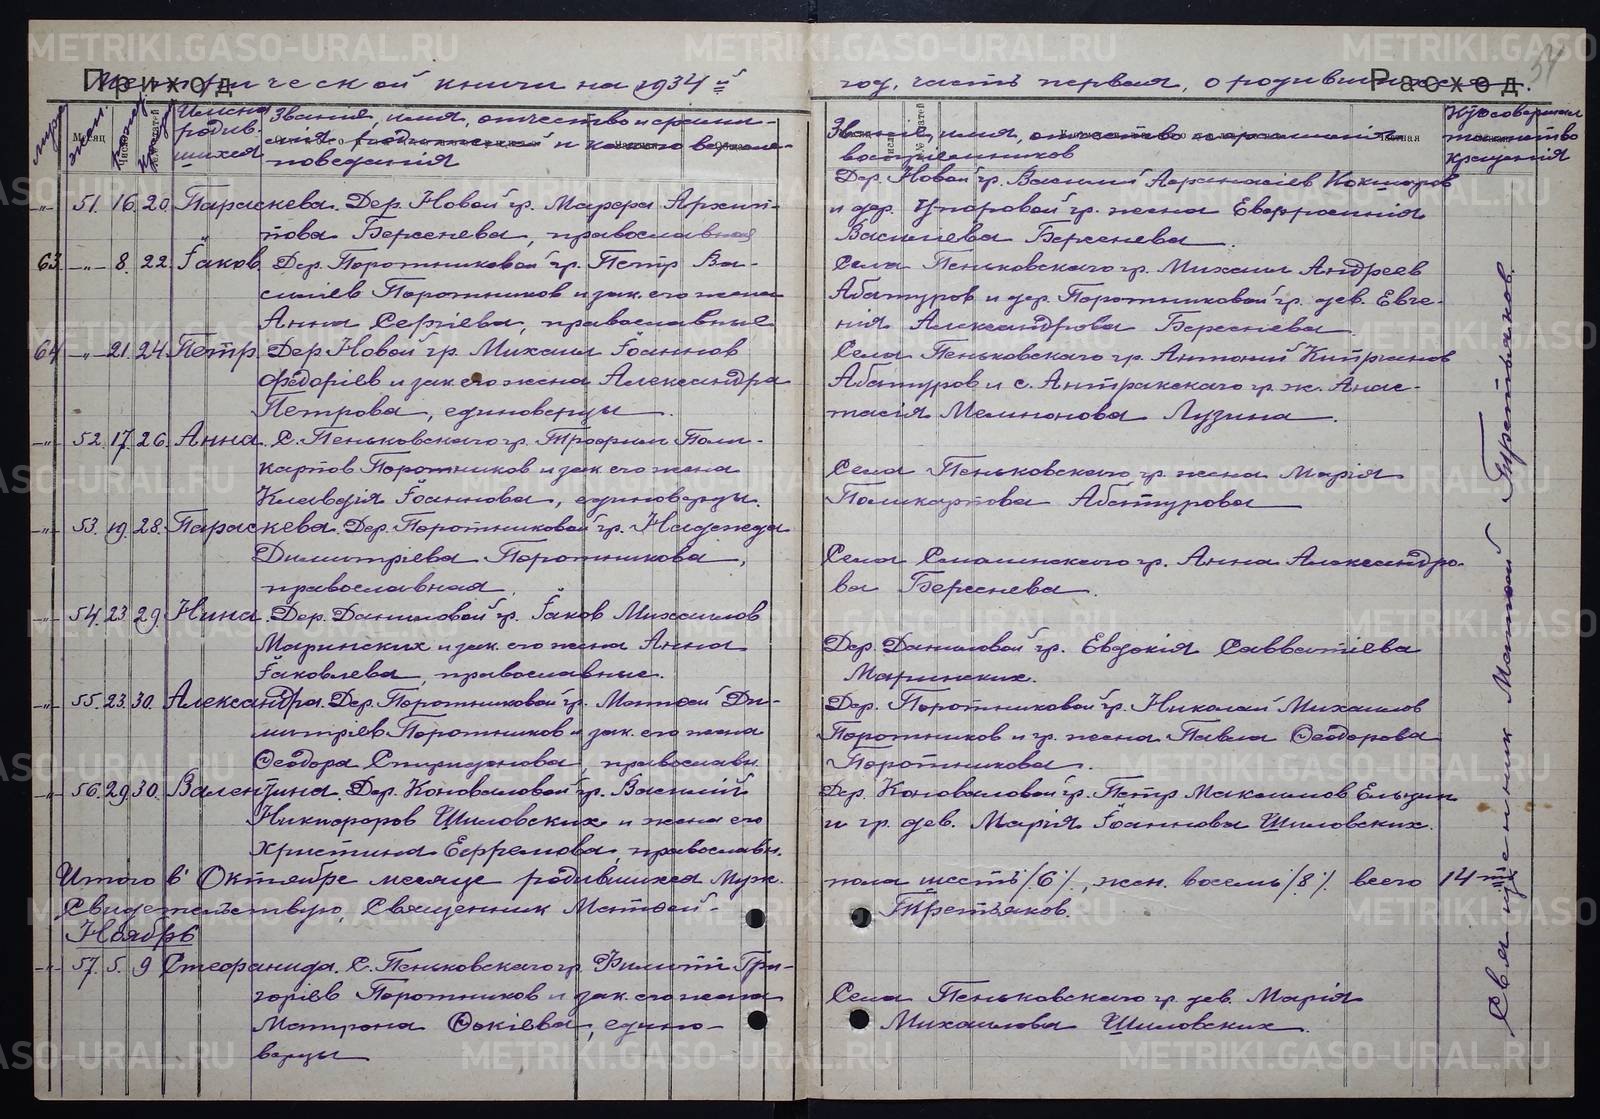 Приход
Метрической книги на 1934й год, часть первая, о родившихся.
Расход
34
Имена родив-шихся
Звание, имя, отчество и фамилия родителей и какого вероис-
поведания
Звание, имя, отчество и фамилия
восприемников
Кто совершал
таинство
крещения
-"- 51. 16. 20. Параскева. Дер. Новой гр. Марфа Архип-
пова Берсенева, православная
Дер. Новой гр. Василий Афанасиев Кокшаров
и дер. Упоровой гр. жена Евфросинія
Василіева Берсенева.
63. -"- 8. 22. Іаков. Дер. Поротниковой гр. Петр Ва-
силіев Поротников и зак. его жена
Анна Сергіева, православные
Села Пеньковскаго гр. Михаил Андреев
Абатуров и дер. Поротниковой гр. дев. Евге-
нія Александрова Берсенева.
64. -"- 21. 24. Петр. Дер. Новой гр. Михаил Іоаннов
Федоріев и зак. его жена Александра
Петрова, единоверцы.
Села Пеньковскаго гр. Антоний Киприанов
Абатуров и с. Антракскаго гр. ж. Анас-
тасія Мелитонова Лузина.
-"- 52. 17. 26. Анна. С. Пеньковскаго гр. Трофим Поли-
карпов Поротников и зак. его жена
Клавдія Іоаннова, единоверцы.
Села Пеньковскаго гр. жена Марія
Поликарпова Абатурова
-"- 53. 19. 28. Параскева. Дер. Поротниковой гр. Надежда
Димитріева Поротникова,
православная.
Села Смолинскаго гр. Анна Александро-
ва Берсенева.
-"- 54. 23. 29. Нина. Дер. Даниловой гр. Іаков Михаилов
Маринских и зак. его жена Анна
Іаковлева, православные.
Дер. Даниловой гр. Евдокія Савватіева
Маринских.
-"- 55. 23. 30. Александра. Дер. Поротниковой гр. Матѳей Ди-
митріев Поротников и зак. его жена
Ѳеодора Спиридонова, православн.
Дер. Поротниковой гр. Николай Михаилов
Поротников и гр. жена Павла Ѳеодорова
Поротникова.
-"- 56. 29. 30. Валентина. Дер. Коноваловой гр. Василій
Никифоров Шиловских и жена его
Христина Ефремова, православн.
Дер. Коноваловой гр. Петр Максимов Ельцин
и гр. дев. Марія Іоаннова Шиловских.
Итого в Октябре месяце родившихся муж. пола шесть /6/, жен. восемь /8/ всего 14ть
Свидетельствую, Священник Матѳей Третьяков.
Ноябрь
-"- 57. 5. 9 Стефанида. С. Пеньковскаго гр. Филипп Гри-
горіев Поротников и зак. его жена
Матрона Ѳокіева, едино-
верцы
Села Пеньковскаго гр. дев. Марія
Михаилова Шиловских.
Священник Матѳей Третьяков.
METRIKI.GASO-URAL.RU